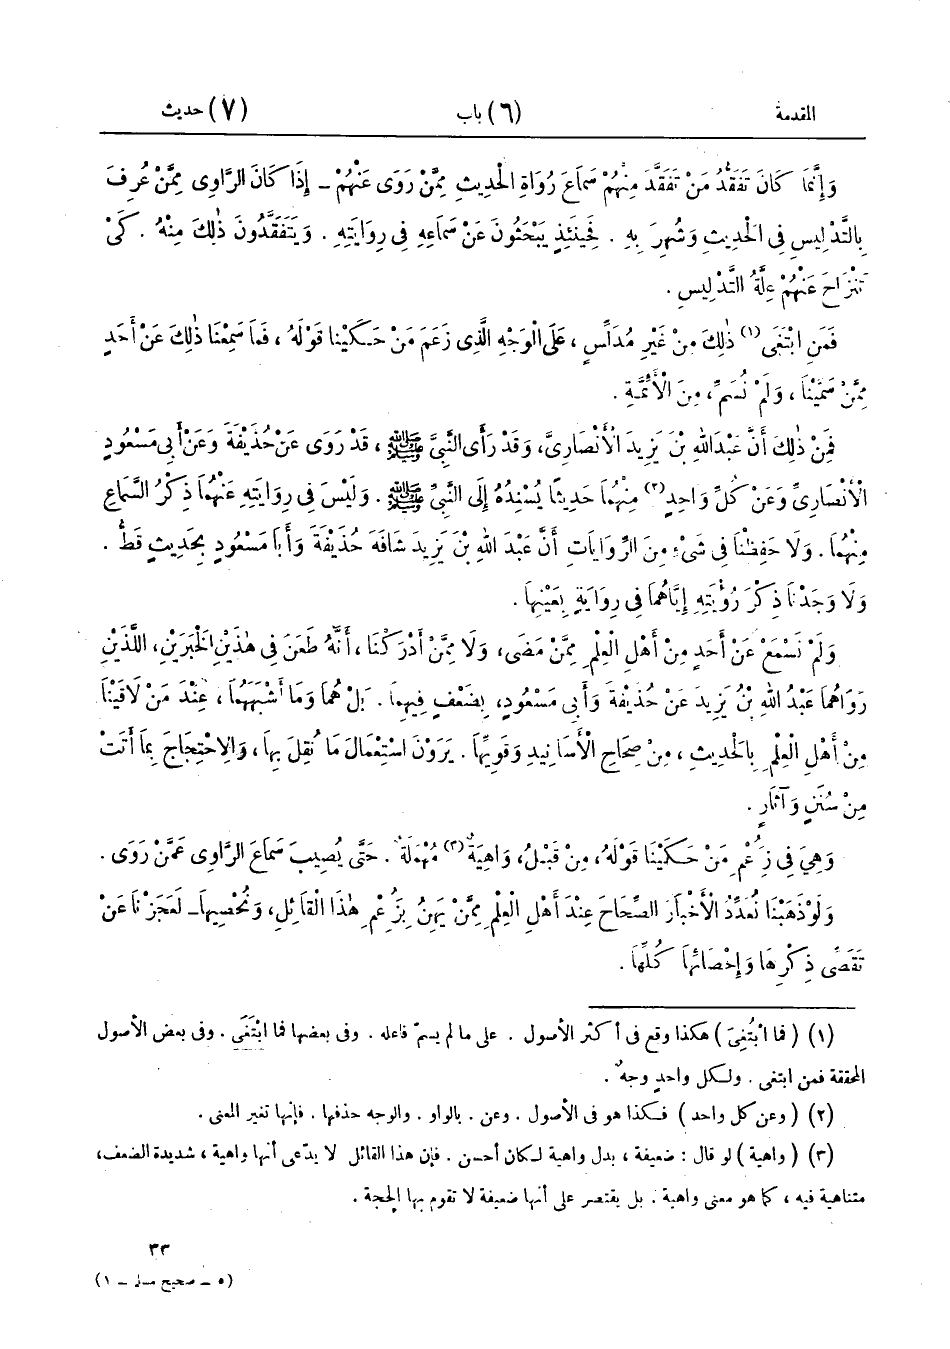 المقدمة (٦) باب (٧) حديث
وَإِنَّمَا كَانَ تَفَقُّدُ مَنْ تَفَقَّدَ مِنْهُمْ سَمَاعَ رُوَاةِ الْحَدِيثِ مِمَّنْ رَوَى عَنْهُمْ – إِذَا كَانَ الرَّاوِى مِمَّنْ عُرِفَ
بِالتَّدْلِيسِ فِى الْحَدِيثِ وَشُهِرَ بِهِ . فَحِينَئِذٍ يَبْحَثُونَ عَنْ سَمَاعِهِ فِى رِوَايَتِهِ . وَيَتَفَقَّدُونَ ذٰلِكَ مِنْهُ . كَىْ
تَنْزَاحَ عَنْهُمْ عِلَّةُ التَّدْلِيسِ .
فَمَنِ ابْتَغَى (١) ذٰلِكَ مِنْ غَيْرِ مُدَلِّسٍ ، عَلَى الْوَجْهِ الَّذِى زَعَمَ مَنْ حَكَيْنَا قَوْلَهُ ، فَمَا سَمِعْنَا ذٰلِكَ عَنْ أَحَدٍ
مِمَّنْ سَمَّيْنَا ، وَلَمْ نُسَمِّ ، مِنَ الْأَئِمَّةِ .
فَمِنْ ذٰلِكَ أَنَّ عَبْدَ اللهِ بْنَ يَزِيدَ الْأَنْصَارِىَّ، وَقَدْ رَأَى النَّبِىَّ ﷺ ، قَدْ رَوَى عَنْ حُذَيْفَةَ وَعَنْ أَبِى مَسْعُودٍ
الْأَنْصَارِىِّ وَعَنْ كُلِّ وَاحِدٍ (٢) مِنْهُمَا حَدِيثًا يُسْنِدُهُ إِلَى النَّبِىِّ ﷺ . وَلَيْسَ فِى رِوَايَتِهِ عَنْهُمَا ذِكْرُ السَّمَاعِ
مِنْهُمَا . وَلَا حَفِظْنَا فِى شَىْءٍ مِنَ الرِّوَايَاتِ أَنَّ عَبْدَ اللهِ بْنَ يَزِيدَ شَافَهَ حُذَيْفَةَ وَأَبَا مَسْعُودٍ بِحَدِيثٍ قَطُّ .
وَلَا وَجَدْنَا ذِكْرَ رُؤْيَتِهِ إِيَّاهُمَا فِى رِوَايَةٍ بِعَيْنِهَا .
وَلَمْ نَسْمَعْ عَنْ أَحَدٍ مِنْ أَهْلِ الْعِلْمِ مِمَّنْ مَضَى، وَلَا مِمَّنْ أَدْرَكْنَا ، أَنَّهُ طَعَنَ فِى هٰذَيْنِ الْخَبَرَيْنِ، اللَّذَيْنِ
رَوَاهُمَا عَبْدُ اللهِ بْنُ يَزِيدَ عَنْ حُذَيْفَةَ وَأَبِى مَسْعُودٍ، بِضَعْفٍ فِيهِمَا . بَلْ هُمَا وَمَا أَشْبَهَهُمَا ، عِنْدَ مَنْ لَاقَيْنَا
مِنْ أَهْلِ الْعِلْمِ بِالْحَدِيثِ ، مِنْ صِحَاحِ الْأَسَانِيدِ وَقَوِيِّهَا . يَرَوْنَ اسْتِعْمَالَ مَا نُقِلَ بِهَا ، وَالِاحْتِجَاجَ بِمَا أَتَتْ
مِنْ سُنَنٍ وَآثَارٍ .
وَهِىَ فِى زَعْمِ مَنْ حَكَيْنَا قَوْلَهُ، مِنْ قَبْلُ، وَاهِيَةٌ (٣) مُهْمَلَةٌ . حَتَّى يُصِيبَ سَمَاعَ الرَّاوِى عَمَّنْ رَوَى .
وَلَوْ ذَهَبْنَا نُعَدِّدُ الْأَخْبَارَ الصِّحَاحَ عِنْدَ أَهْلِ الْعِلْمِ مِمَّنْ يَهِنُ بِزَعْمِ هٰذَا الْقَائِلِ، وَنُحْصِيهَا – لَعَجَزْنَا عَنْ
تَقَصِّى ذِكْرِهَا وَإِحْصَائِهَا كُلِّهَا .
(١) (فما ابْتُغِىَ) هكذا وقع فى أكثر الأصول . على ما لم يسمّ فاعله . وفى بعضها فما ابْتَغَى . وفى بعض الأصول
المحققة فمن ابتغى . ولكل واحدٍ وجهٌ .
(٢) (وعن كل واحد) فكذا هو فى الأصول . وعن . بالواو . والوجه حذفها . فإنها تغير المعنى .
(٣) (واهية) لو قال : ضعيفة ، بدل واهية لكان أحسن . فإن هذا القائل لا يدّعى أنها واهية ، شديدة الضعف،
متناهية فيه ، كما هو معنى واهية . بل يقتصر على أنها ضعيفة لا تقوم بها الحجة .
٣٣
(٥ – صحيح مسلم – ١)